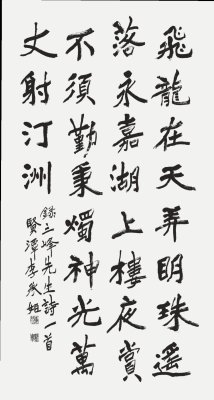 飛龍在天弄明珠遙
落永嘉湖上樓夜賞
不須勤秉燭神光萬
丈射汀洲
錄三峰先生詩一首
賢潭李承姬